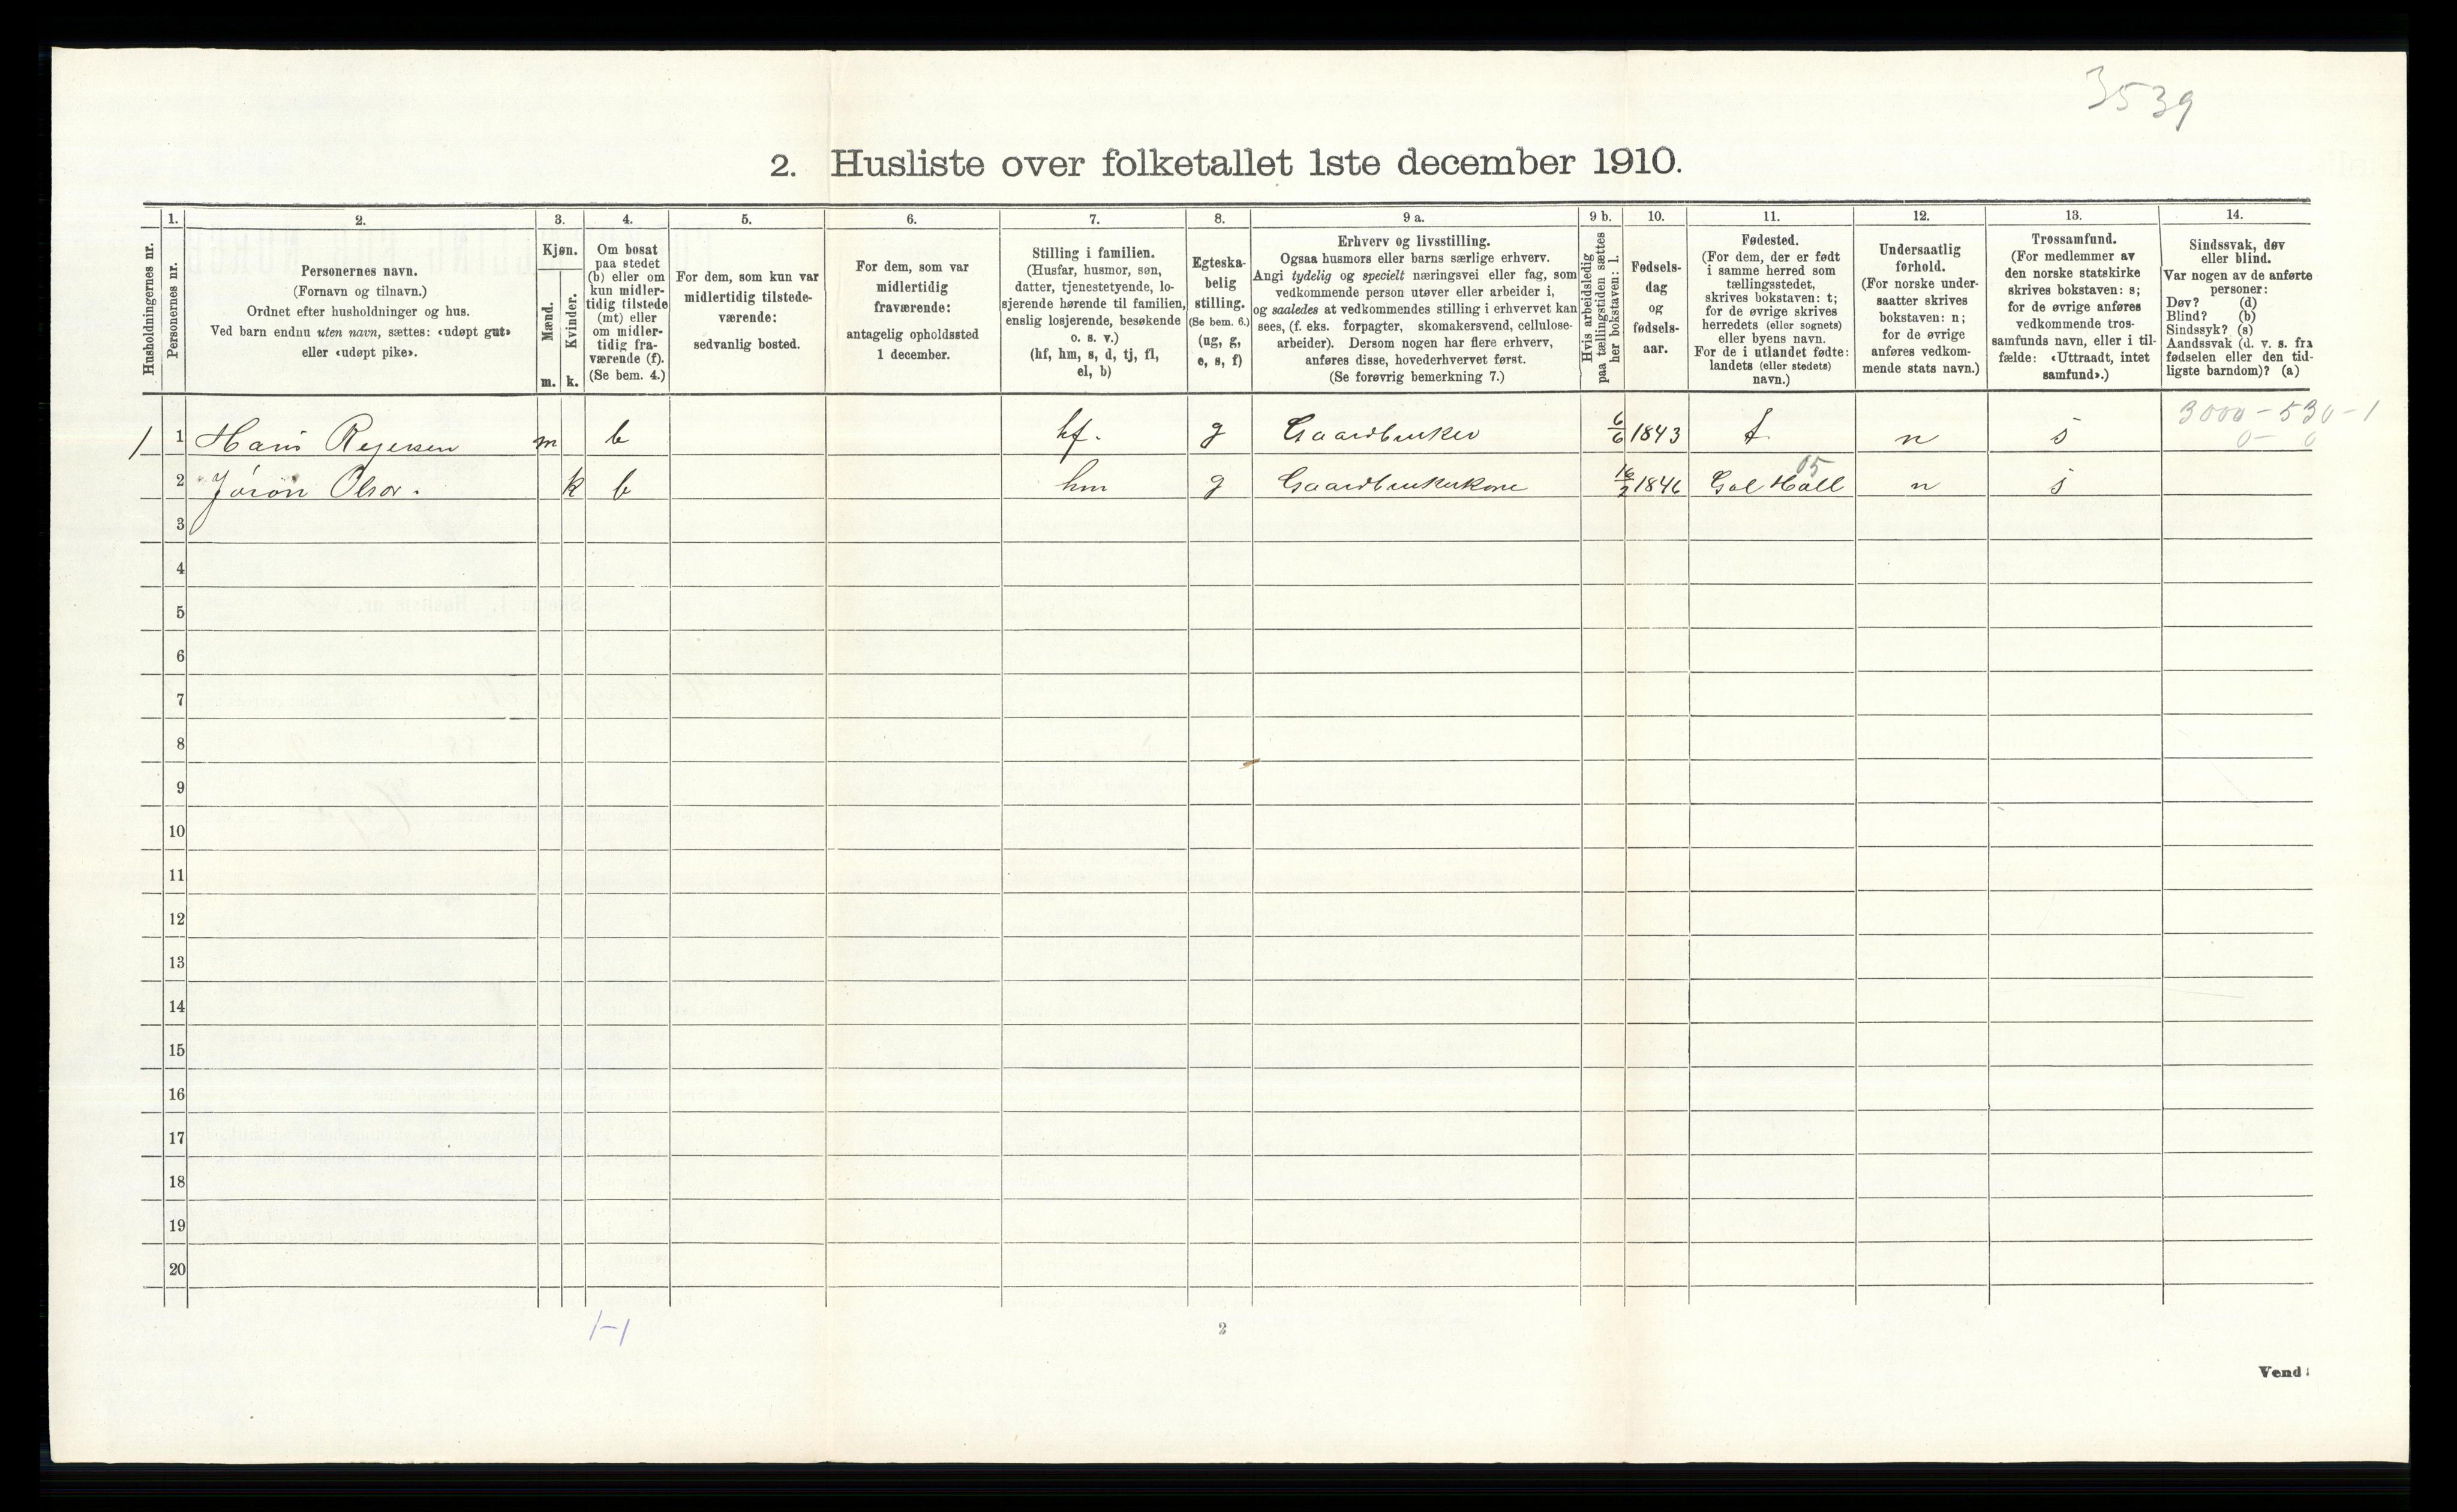 3539
2. Husliste over folketallet 1ste december 1910.
Husholdningernes nr.
1.
Personernes nr.
2.
Personernes navn.
(Fornavn og tilnavn.)
Ordnet efter husholdninger og hus.
Ved barn endnu uten navn, sættes: «udøpt gut»
eller «udøpt pike».
3.
Kjøn.
Mænd.
Kvinder.
m. k.
4.
Om bosat
paa stedet
(b) eller om
kun midler-
tidig tilstede
(mt) eller
om midler-
tidig fra-
værende (f).
(Se bem. 4.)
5.
For dem, som kun var
midlertidig tilstede-
værende:
sedvanlig bosted.
6.
For dem, som var
midlertidig
fraværende:
antagelig opholdssted
1 december.
7.
Stilling i familien.
(Husfar, husmor, søn,
datter, tjenestetyende, lo-
sjerende hørende til familien,
enslig losjerende, besøkende
o. s. v.)
(hf, hm, s, d, tj, fl,
el, b)
8.
Egteska-
belig
stilling.
(Se bem. 6.)
(ug, g,
e, s, f)
9 a.
Erhverv og livsstilling.
Ogsaa husmors eller barns særlige erhverv.
Angi tydelig og specielt næringsvei eller fag, som
vedkommende person utøver eller arbeider i,
og saaledes at vedkommendes stilling i erhvervet kan
sees, (f. eks. forpagter, skomakersvend, cellulose-
arbeider). Dersom nogen har flere erhverv,
anføres disse, hovederhvervet først.
(Se forøvrig bemerkning 7.)
9 b.
Hvis arbeidsledig
paa tællingstiden sættes
her bokstaven: l.
10.
Fødsels-
dag
og
fødsels-
aar.
11.
Fødested.
(For dem, der er født
i samme herred som
tællingsstedet,
skrives bokstaven: t;
for de øvrige skrives
herredets (eller sognets)
eller byens navn.
For de i utlandet fødte:
landets (eller stedets)
navn.)
12.
Undersaatlig
forhold.
(For norske under-
saatter skrives
bokstaven: n;
for de øvrige
anføres vedkom-
mende stats navn.)
13.
Trossamfund.
(For medlemmer av
den norske statskirke
skrives bokstaven: s;
for de øvrige anføres
vedkommende tros-
samfunds navn, eller i til-
fælde: «Uttraadt, intet
samfund».)
14.
Sindssvak, døv
eller blind.
Var nogen av de anførte
personer:
Døv? (d)
Blind? (b)
Sindssyk? (s)
Aandssvak (d. v. s. fra
fødselen eller den tid-
ligste barndom)? (a)
3000-530-1
0-0
1 1 Hans Rejersen m b hf. g Gaardbruker 6/6 1843 t n s
05
2 Jøron Olsdr. k b hm g Gaardbrukerkone 16/2 1846 Gol Hall n s
3
4
5
6
7
8
9
10
11
12
13
14
15
16
17
18
19
20
1-1
2
Vend!